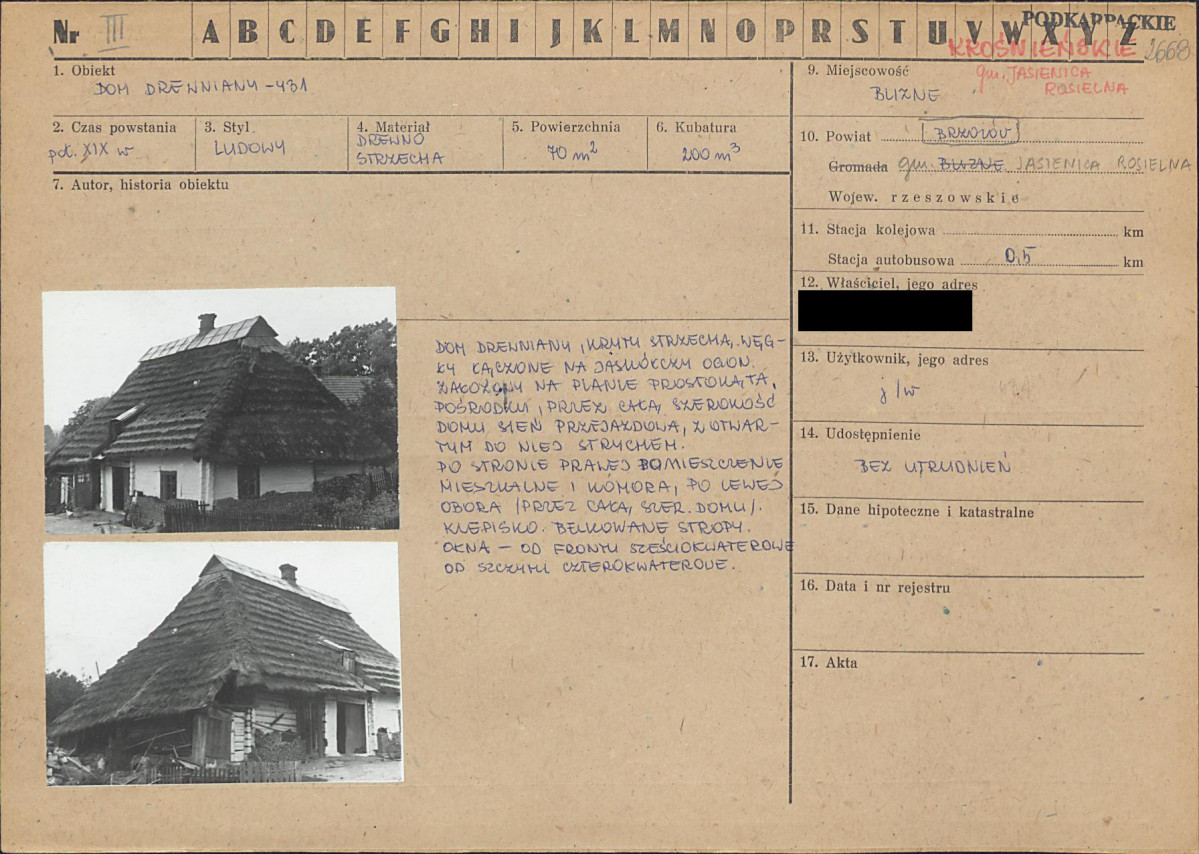 Nr III A B C D E F G H I J K L M N O P R S T U V W X Y Z
PODKARPACKIE
KROŚNIEŃSKIE 2668
gm. JASIENICA
ROSIELNA
1. Obiekt
DOM DREWNIANY - 431
2. Czas powstania
poł. XIX w
3. Styl
LUDOWY
4. Materiał
DREWNO
STRZECHA
5. Powierzchnia
70 m²
6. Kubatura
200 m³
7. Autor, historia obiektu
DOM DREWNIANY, KRYTY STRZECHĄ, WĘG-
ŁY ŁĄCZONE NA JASKÓŁCZY OGON.
ZAŁOŻONY NA PLANIE PROSTOKĄTA,
POŚRODKU, PRZEZ CAŁĄ SZEROKOŚĆ
DOMU SIEŃ PRZEJAZDOWA, Z OTWAR-
TYM DO NIEJ STRYCHEM.
PO STRONIE PRAWEJ POMIESZCZENIE
MIESZKALNE I KOMORA, PO LEWEJ
OBORA /PRZEZ CAŁĄ SZER. DOMU/.
KLEPISKO. BELKOWANE STROPY.
OKNA - OD FRONTU SZEŚCIOKWATEROWE
OD SZCZYTU CZTEROKWATEROWE.
9. Miejscowość
BLIZNE
10. Powiat BRZOZÓW
Gromada gm. BLIZNE JASIENICA ROSIELNA
Wojew. rzeszowskie
11. Stacja kolejowa km
Stacja autobusowa 0,5 km
12. Właściciel, jego adres
13. Użytkownik, jego adres
j/w 431
14. Udostępnienie
BEZ UTRUDNIEŃ
15. Dane hipoteczne i katastralne
16. Data i nr rejestru
17. Akta